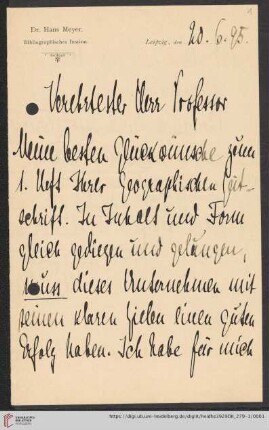 Dr. Hans Meyer.
Bibliographisches Institut.
Leipzig, den 20. 6. 95.
Verehrtester Herr Professor
Meine besten Glückwünsche zum
1. Heft Ihrer Geographischen Zeit-
schrift. In Inhalt und Form
gleich gediegen und gelungen,
muss dieses Unternehmen mit
seinen klaren Zielen einen guten
Erfolg haben. Ich habe für mich